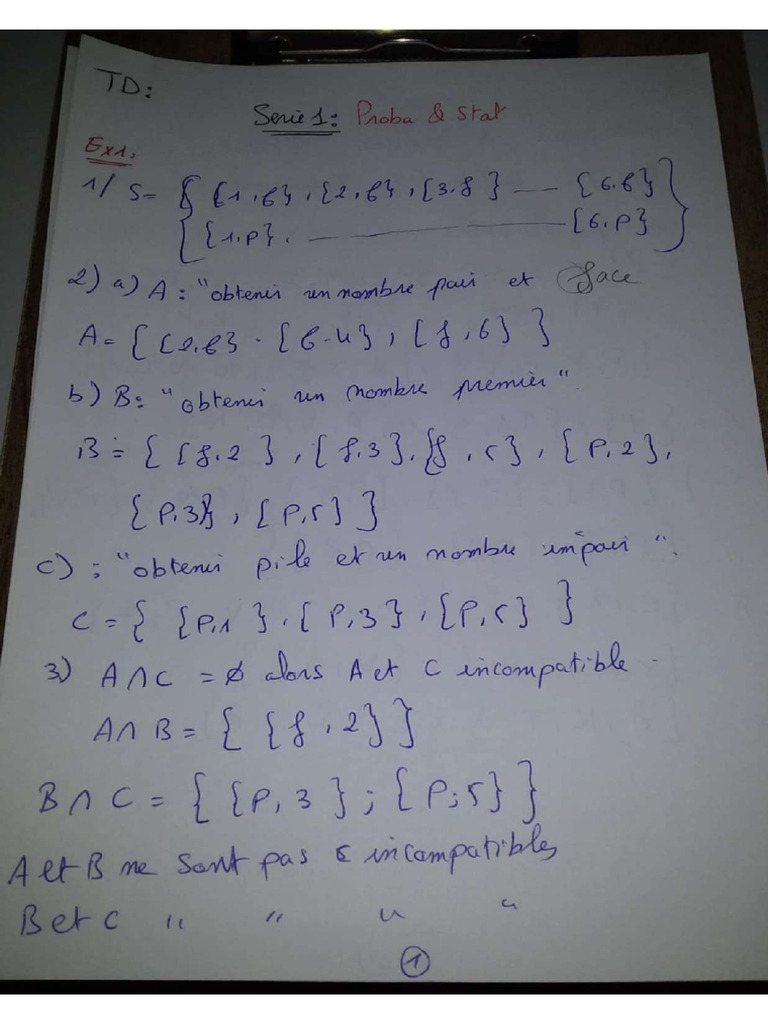 TD:
Serie 1: Proba & Stat
Ex1.
1/ S= { {1,f}, {2,f}, {3.f} — {6.f}
{1.P}. ——— {6.P} }
2) a) A: "obtenir un nombre pair et face
A= { {2.f} . {f.4}, {f,6} }
b) B: "obtenir un nombre premier"
B = { {f.2}, {f.3}. {f,5}, {P,2},
{P,3}, {P,5} }
c) : "obtenir pile et un nombre impair".
C = { {P,1}, {P,3}, {P,5} }
3) A∩C = ∅ alors A et C incompatible.
A∩B = { {f,2} }
B∩C = { {P,3} ; {P;5} }
A et B ne sont pas incompatibles
B et C " " " "
1